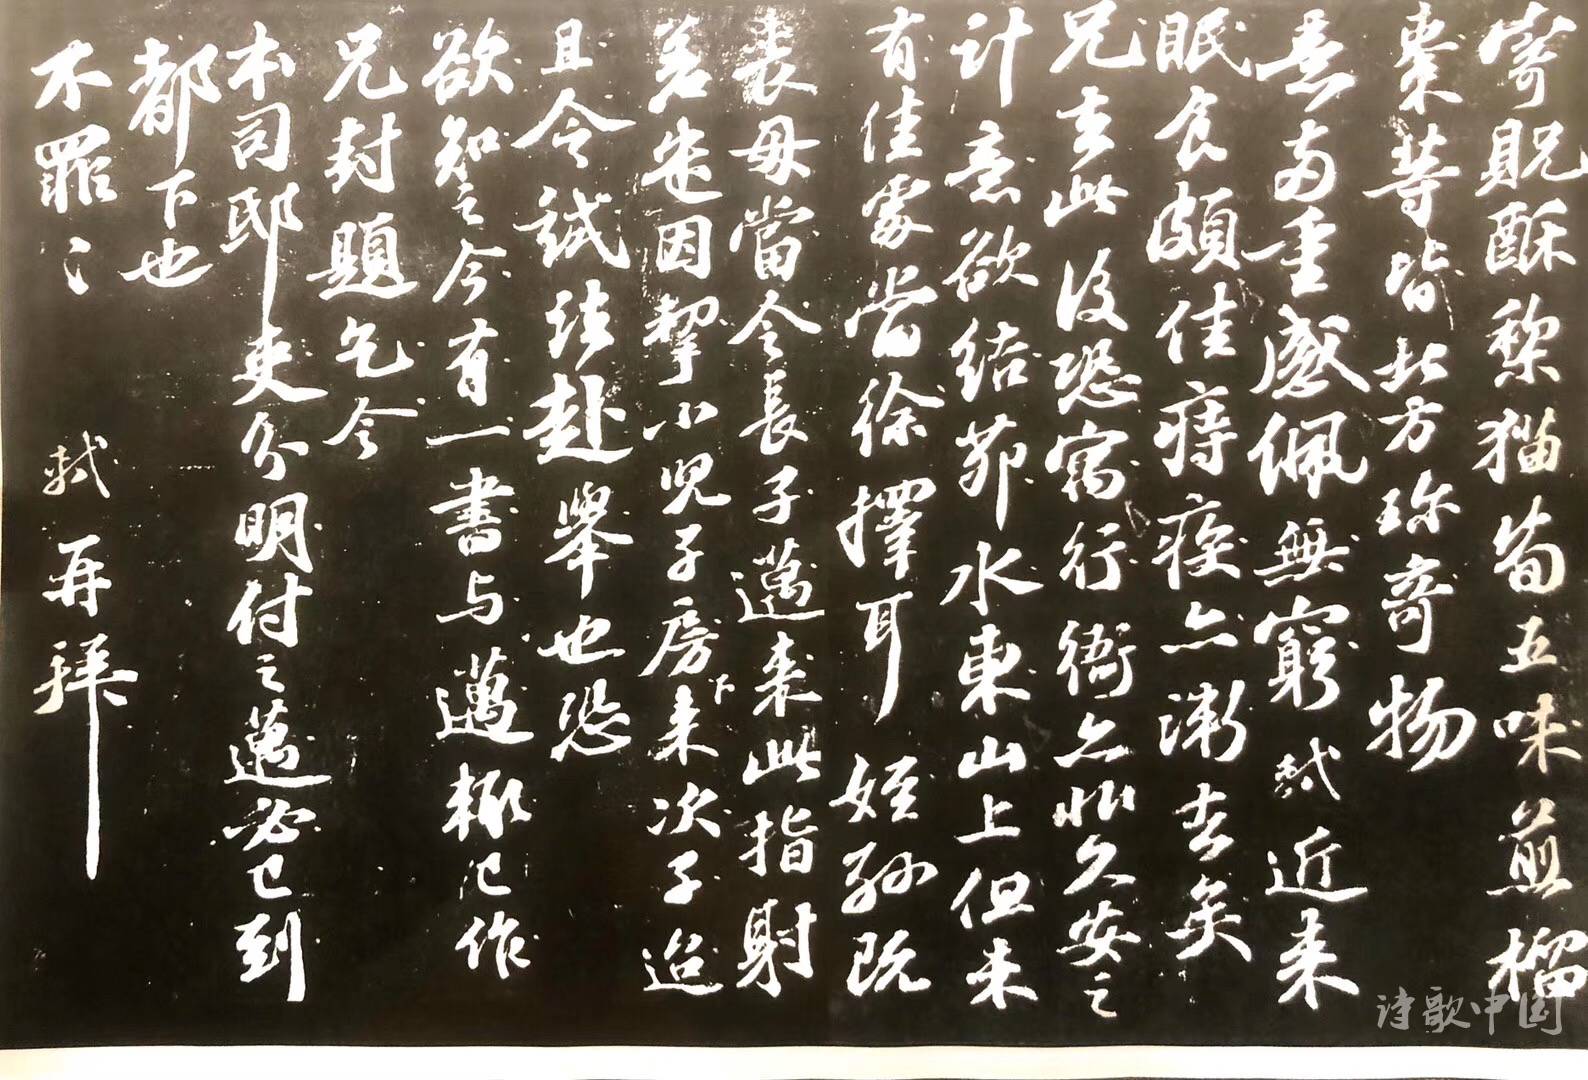 寄貺酥梨猫筍五味煎榴
栗等皆北方珍奇物
意兩重感佩無窮軾近来
眠食頗佳痔疾亦漸去矣
兄去此後恐寓行衙亦非久安之
計意欲結茆水東山上但未
有佳處當徐擇耳姪孫既
喪母當令長子邁来此指射
差遣因挈小兒子房下来次子迨
且令試法赴舉也恐
欲知之今有一書与邁輒已作
兄封題乞令
本司邸吏分明付之邁必已到
都下也
不罪〻
軾再拜
诗歌中国